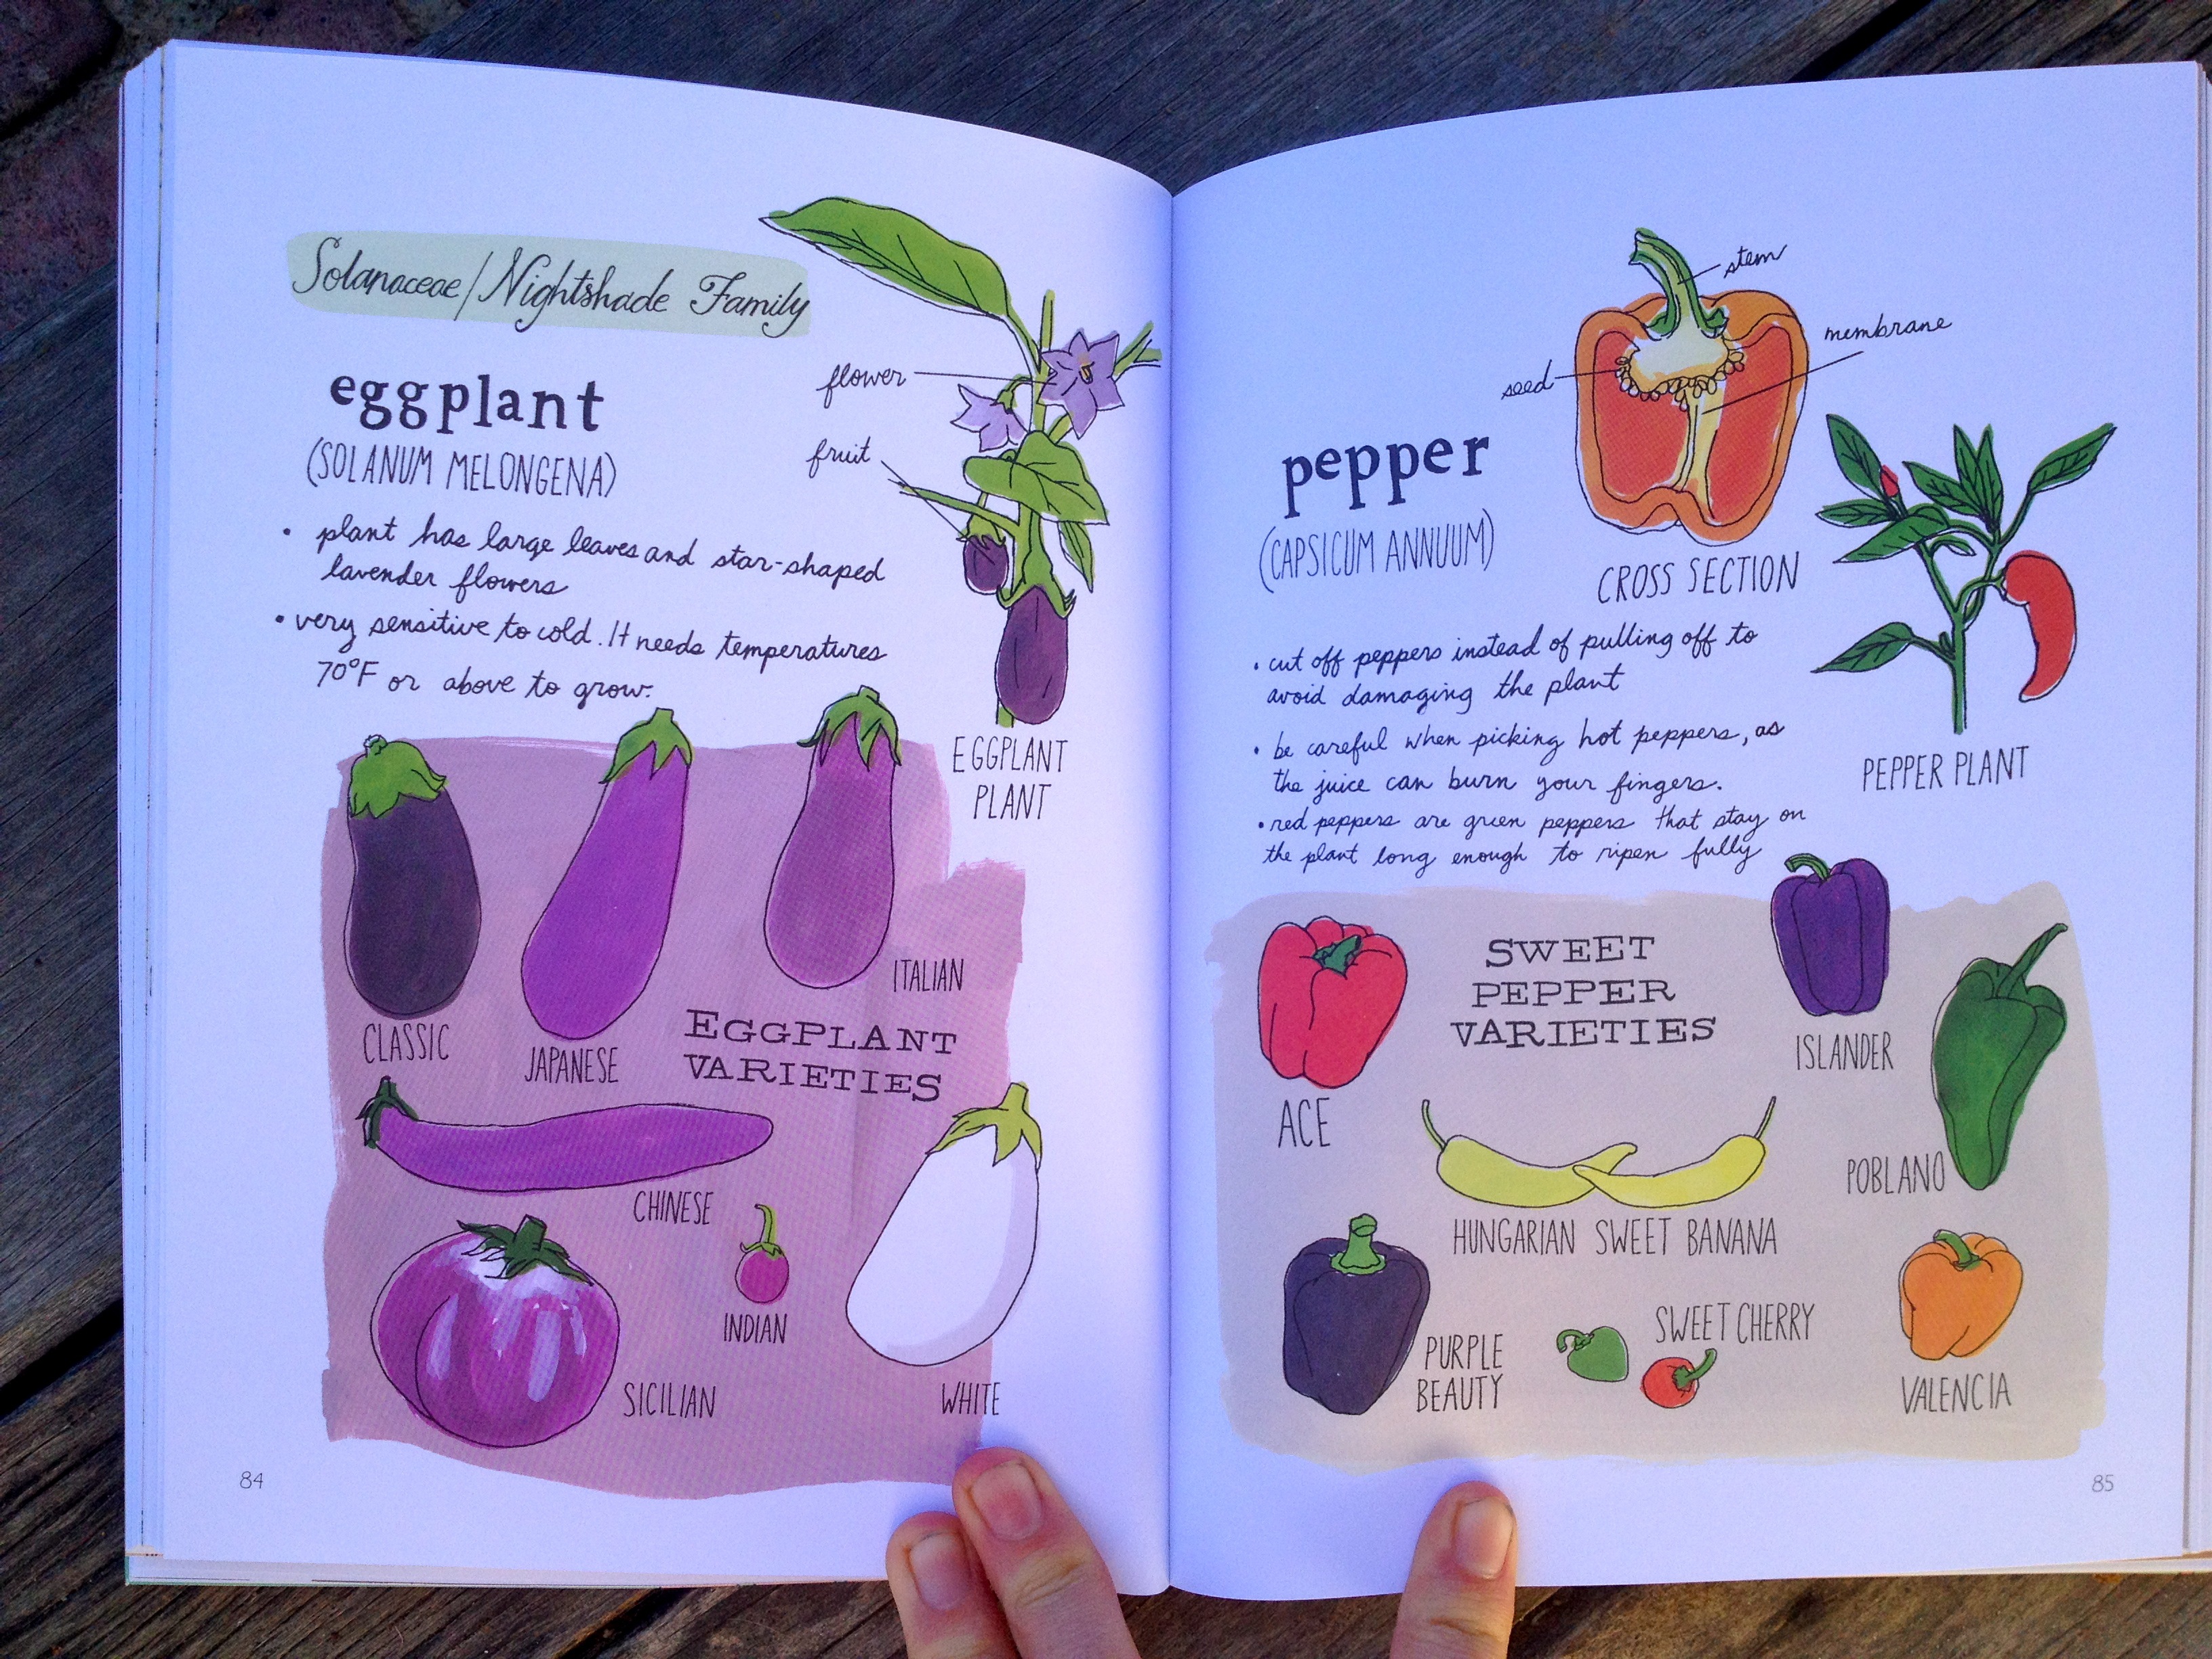 Solanaceae/Nightshade Family
eggplant
(SOLANUM MELONGENA)
• plant has large leaves and star-shaped
lavender flowers
• very sensitive to cold. It needs temperatures
70°F or above to grow.
flower
fruit
EGGPLANT
PLANT
CLASSIC
JAPANESE
ITALIAN
EGGPLANT
VARIETIES
CHINESE
INDIAN
SICILIAN
WHITE
84
stem
membrane
seed
pepper
(CAPSICUM ANNUUM)
CROSS SECTION
• cut off peppers instead of pulling off to
avoid damaging the plant
• be careful when picking hot peppers, as
the juice can burn your fingers.
• red peppers are green peppers that stay on
the plant long enough to ripen fully
PEPPER PLANT
SWEET
PEPPER
VARIETIES
ACE
ISLANDER
POBLANO
HUNGARIAN SWEET BANANA
PURPLE
BEAUTY
SWEET CHERRY
VALENCIA
85